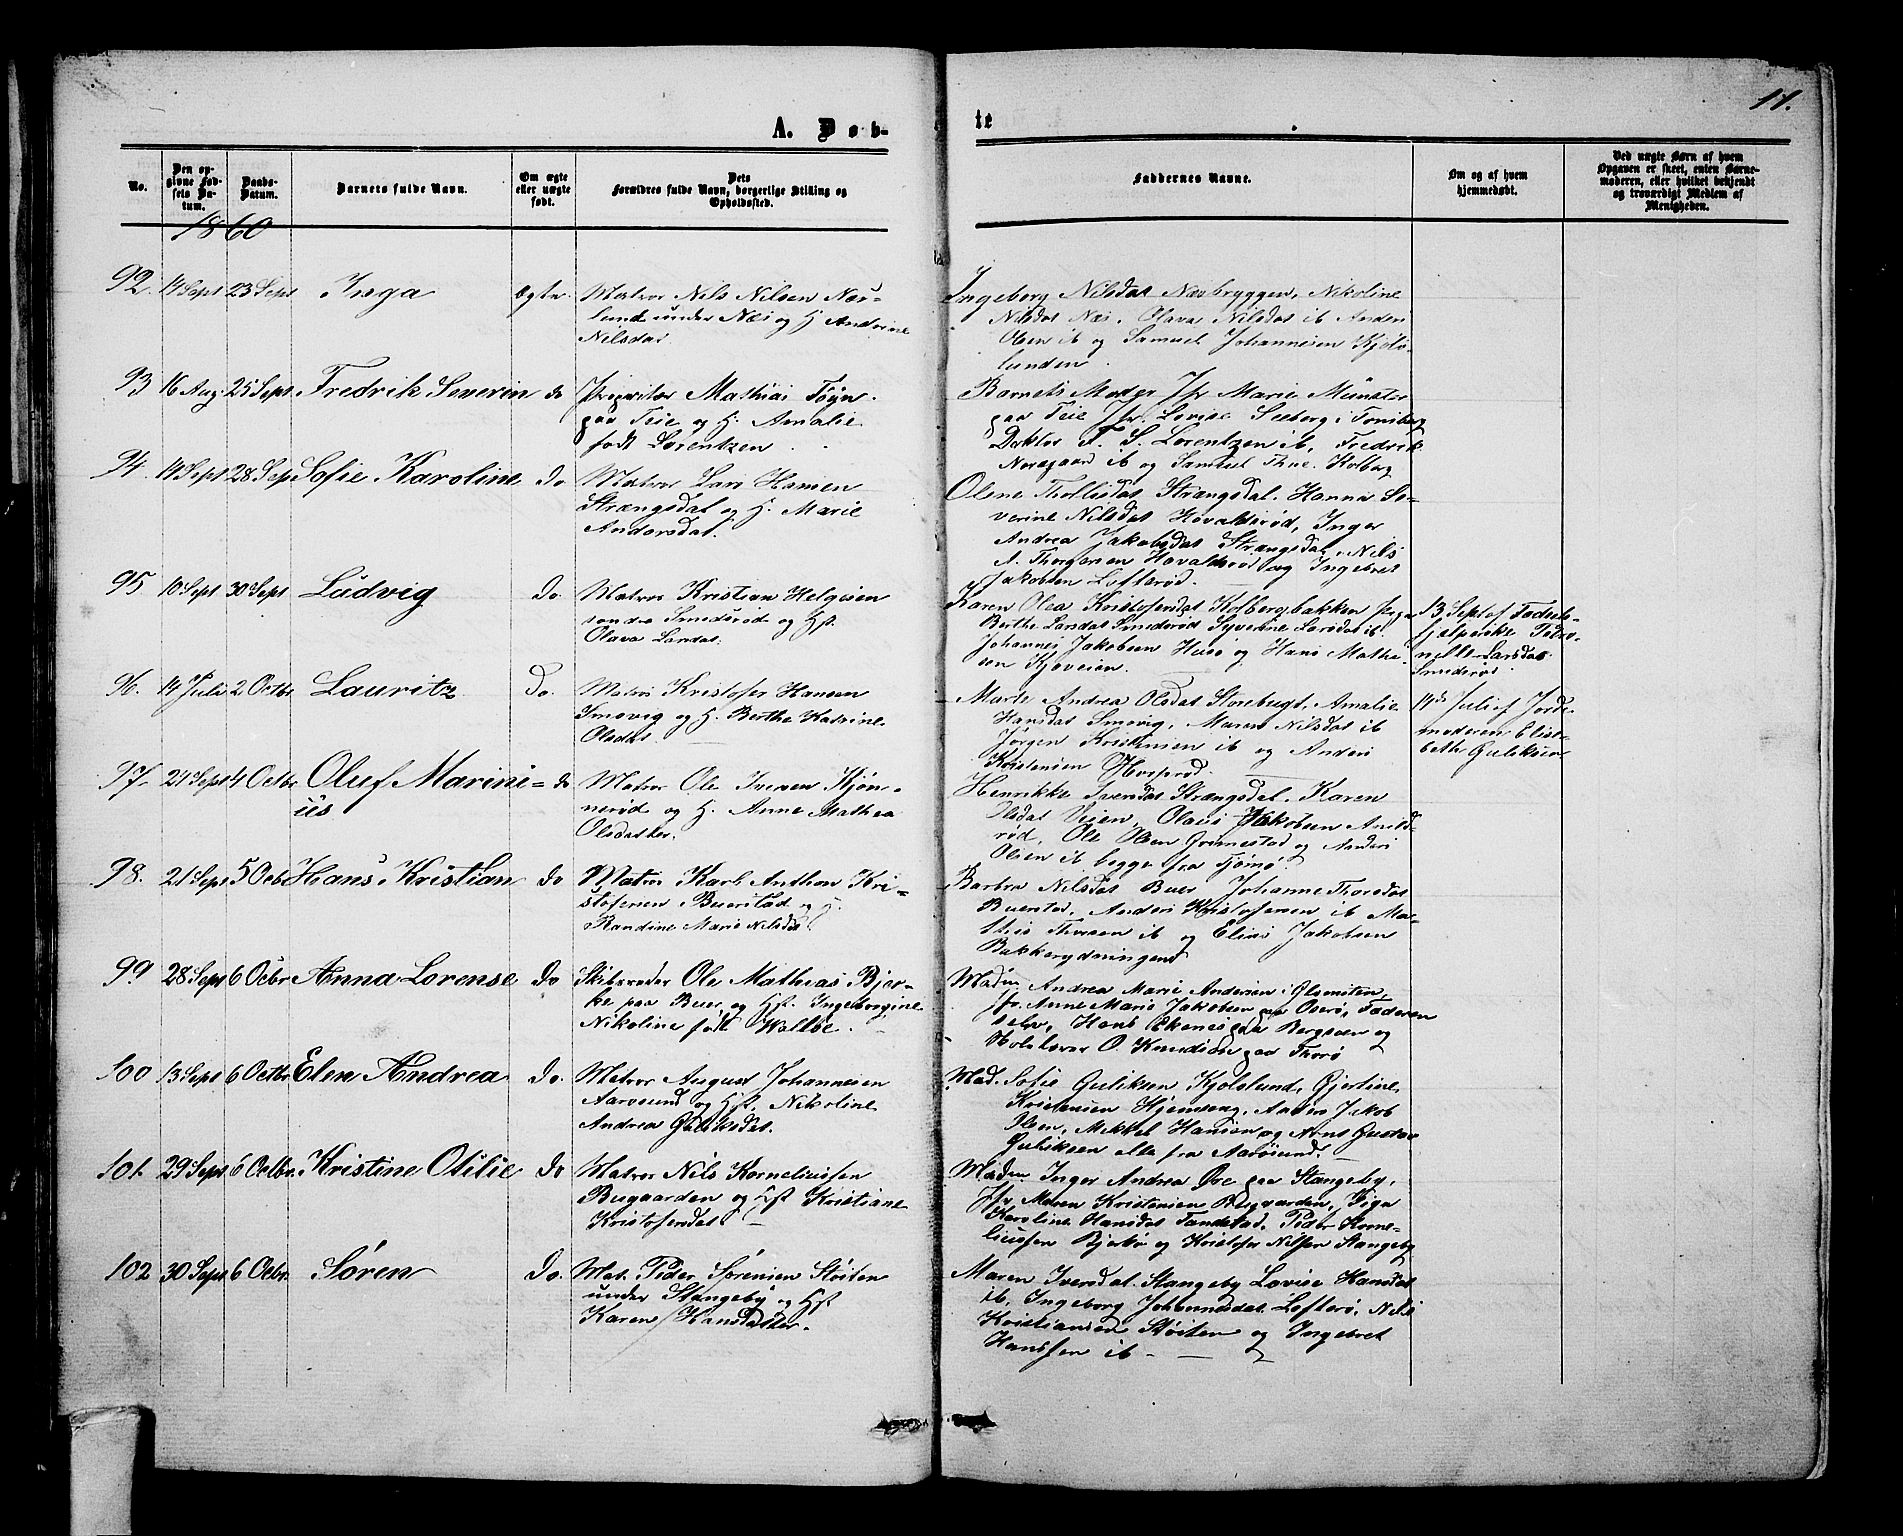 11.
A. Døb-
te
No.
Den opgivne Fødsels Datum.
Daabs-Datum.
Barnets fulde Navn.
Om ægte eller uægte født.
Dets Forældres fulde Navn, borgerlige Stilling og Opholdssted.
Faddernes Navne.
Om og af hvem hjemmedøbt.
Ved uægte Børn af hvem Opgaven er skeet, enten Barnemoderen, eller hvilket bekjendt og troværdigt Medlem af Menigheden.
1860
92. 14 Sept 23 Sept Inga ægte. Matros Nils Nilsen Nes-
lund under Nes og H. Andrine
Nilsdat
Ingeborg Nilsdat Nesbryggen, Nikoline
Nilsdat Nes, Olava Nilsdat ib Anders
Olsen ib og Samuel Johannesen Kjøls-
lunden
93 16 Aug. 25 Sept. Fredrik Severin do Proprietær Mathias Føyn
paa Teie og H. Amalie
født Lorentzen
Barnets Moder Jfr Marie Münster
paa Teie Jfr. Lovise Seeberg i Tønsberg
Doktor F. S. Lorentzen ib, Fredrik
Norgaard ib og Samuel Thue. Kolberg
94. 14 Sept 28 Sep Sofie Karoline do Matros Lars Hansen
Strængsdal og H. Marie
Andersdat.
Olene Thollisdat Strængsdal. Hanna Se-
verine Nilsdat Hovaldsrød, Inger
Andrea Jakobsdat Strængsdal, Nils
A. Thorgersen Havaldsrød og Ingebret
Jakobsen Lofterød.
95 10 Sept 30 Sept Ludvig do. Matros Kristian Helgesen
søndre Smedsrød og Hst.
Olava Larsdat.
Karen Olea Kristofersdat Kolbergbakken Pige
Berthe Larsdat Smedsrød Syverine Larsdat ib.
Johannes Jakobsen Husø og Hans Mathi-
sen Kjøveien.
13 Sept af Fødsels-
hjelperske Petro-
nelle Larsdat
Smedsrød.
96. 14 Juli 2 Octbr Lauritz Do. Matros Kristofer Hansen
Smovig og H. Berthe Katrine
Olsdat.
Marte Andrea Olsdat Storebugt, Amalie
Hansdat Smovig, Maren Nilsdat ib
Jørgen Kristensen ib og Anders
Kristensen Horperød.
14de Juli af Jorde-
moderen Elisa-
beth Guliksen
97. 21 Sept 4 Octbr Oluf Marini- do Matros Ole Iversen Kjøn-
us nerød og H. Anne Mathea
Olsdatter.
Henrikke Svendsdat Strængsdal. Karen
Olsdat Veien, Olaus Jakobsen Arild-
rød, Ole Olsen Grimestad og Anders
Olsen ib begge fra Tjømø.
98. 21 Sept 5 Ocb Hans Kristian do Matros Karl Anthon Kri-
stofersen Buerstad og H.
Randine Marie Nilsdat
Barbra Nilsdat Buer Johanne Thorsdat
Buerstad. Anders Kristofersen ib Ma-
this Thorsen ib og Elias Jakobsen
Bakkerydningen
99. 28 Sept 6 Ocbr Anna Lorense do Skibsreder Ole Mathias Bjer-
ke paa Buer og Hst. Ingeborgine
Nikoline født Wettre.
Madm. Andrea Marie Andersen i Glomsten,
Jfr. Anne Marie Jakobsen paa Oserø, Faderen
selv, Hans Ekenes paa Bergsoen og
Kolelærer O. Knudsen paa Thorø
100 13 Sept 6 Octbr Elen Andrea do. Matros August Johannesen
Aarøsund og Hst. Nikoline
Andrea Guliksdat.
Mad. Sofie Guliksen Kjølslund, Gjertine
Kristensen Hjemseng, Anders Jakob
Olsen, Mikkel Hansen og Ants Gustav
Guliksen alle fra Aarøsund.
101. 29 Sept 6 Octbr Kristine Otilie do Matros Nils Korneliussen
Bugaarden og Hst Kristiane
Kristofersdat
Madm Inger Andrea Øre paa Stangeby,
Jfr Maren Kristensen Bugaarden, Pige
Karoline Hansdat Tandestad. Peder Korne-
liussen Bjerkø og Kristofer Nilsen Stangeby
102 30 Sept 6 Ocbr. Søren do. Mat. Peder Sørensen Støiten
under Stangeby og Hst
Karen Hansdatter.
Maren Iversdat. Stangeby Lovise Hansdat
ib, Ingeborg Johannesdat. Lofterø. Nils
Kristiansen Støiten og Ingebret
Hanssen ib